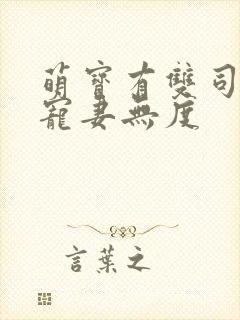 萌寶有雙司
寵妻無度
言葉之